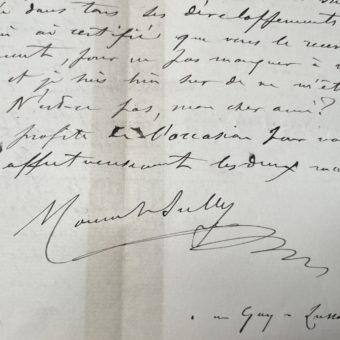 dans tous ses développements
certifié que vous le
pour ne pas manquer à
et je suis bien sûr de ne m'ê
N'est-ce pas, mon cher ami?
profite de l'occasion pour vo
affectueusement les deux ma
Mounet Sully
Gay-Lussa